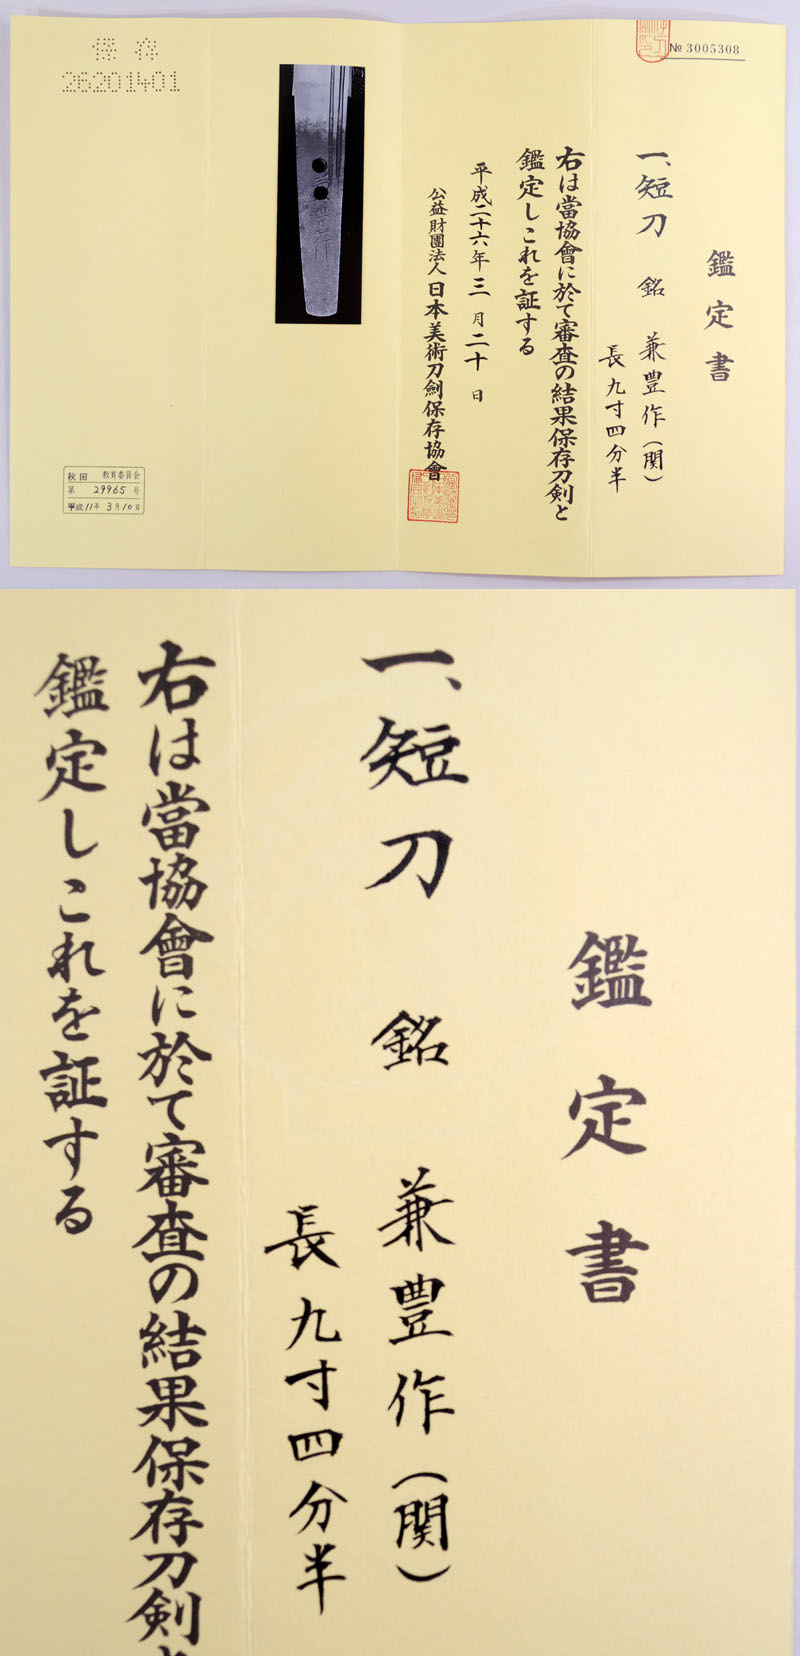 № 3005308
鑑定書
一、短刀 銘 兼豊作(関)
長九寸四分半
右は當協會に於て審査の結果保存刀剣と
鑑定しこれを証する
平成二十六年三月二十日
公益財團法人日本美術刀劍保存協會
兼豊作
保存
26201401
秋田 教育委員会
第 29965 号
平成11年 3月10日
鑑定書
一、短刀 銘 兼豊作(関)
長九寸四分半
右は當協會に於て審査の結果保存刀剣と
鑑定しこれを証する